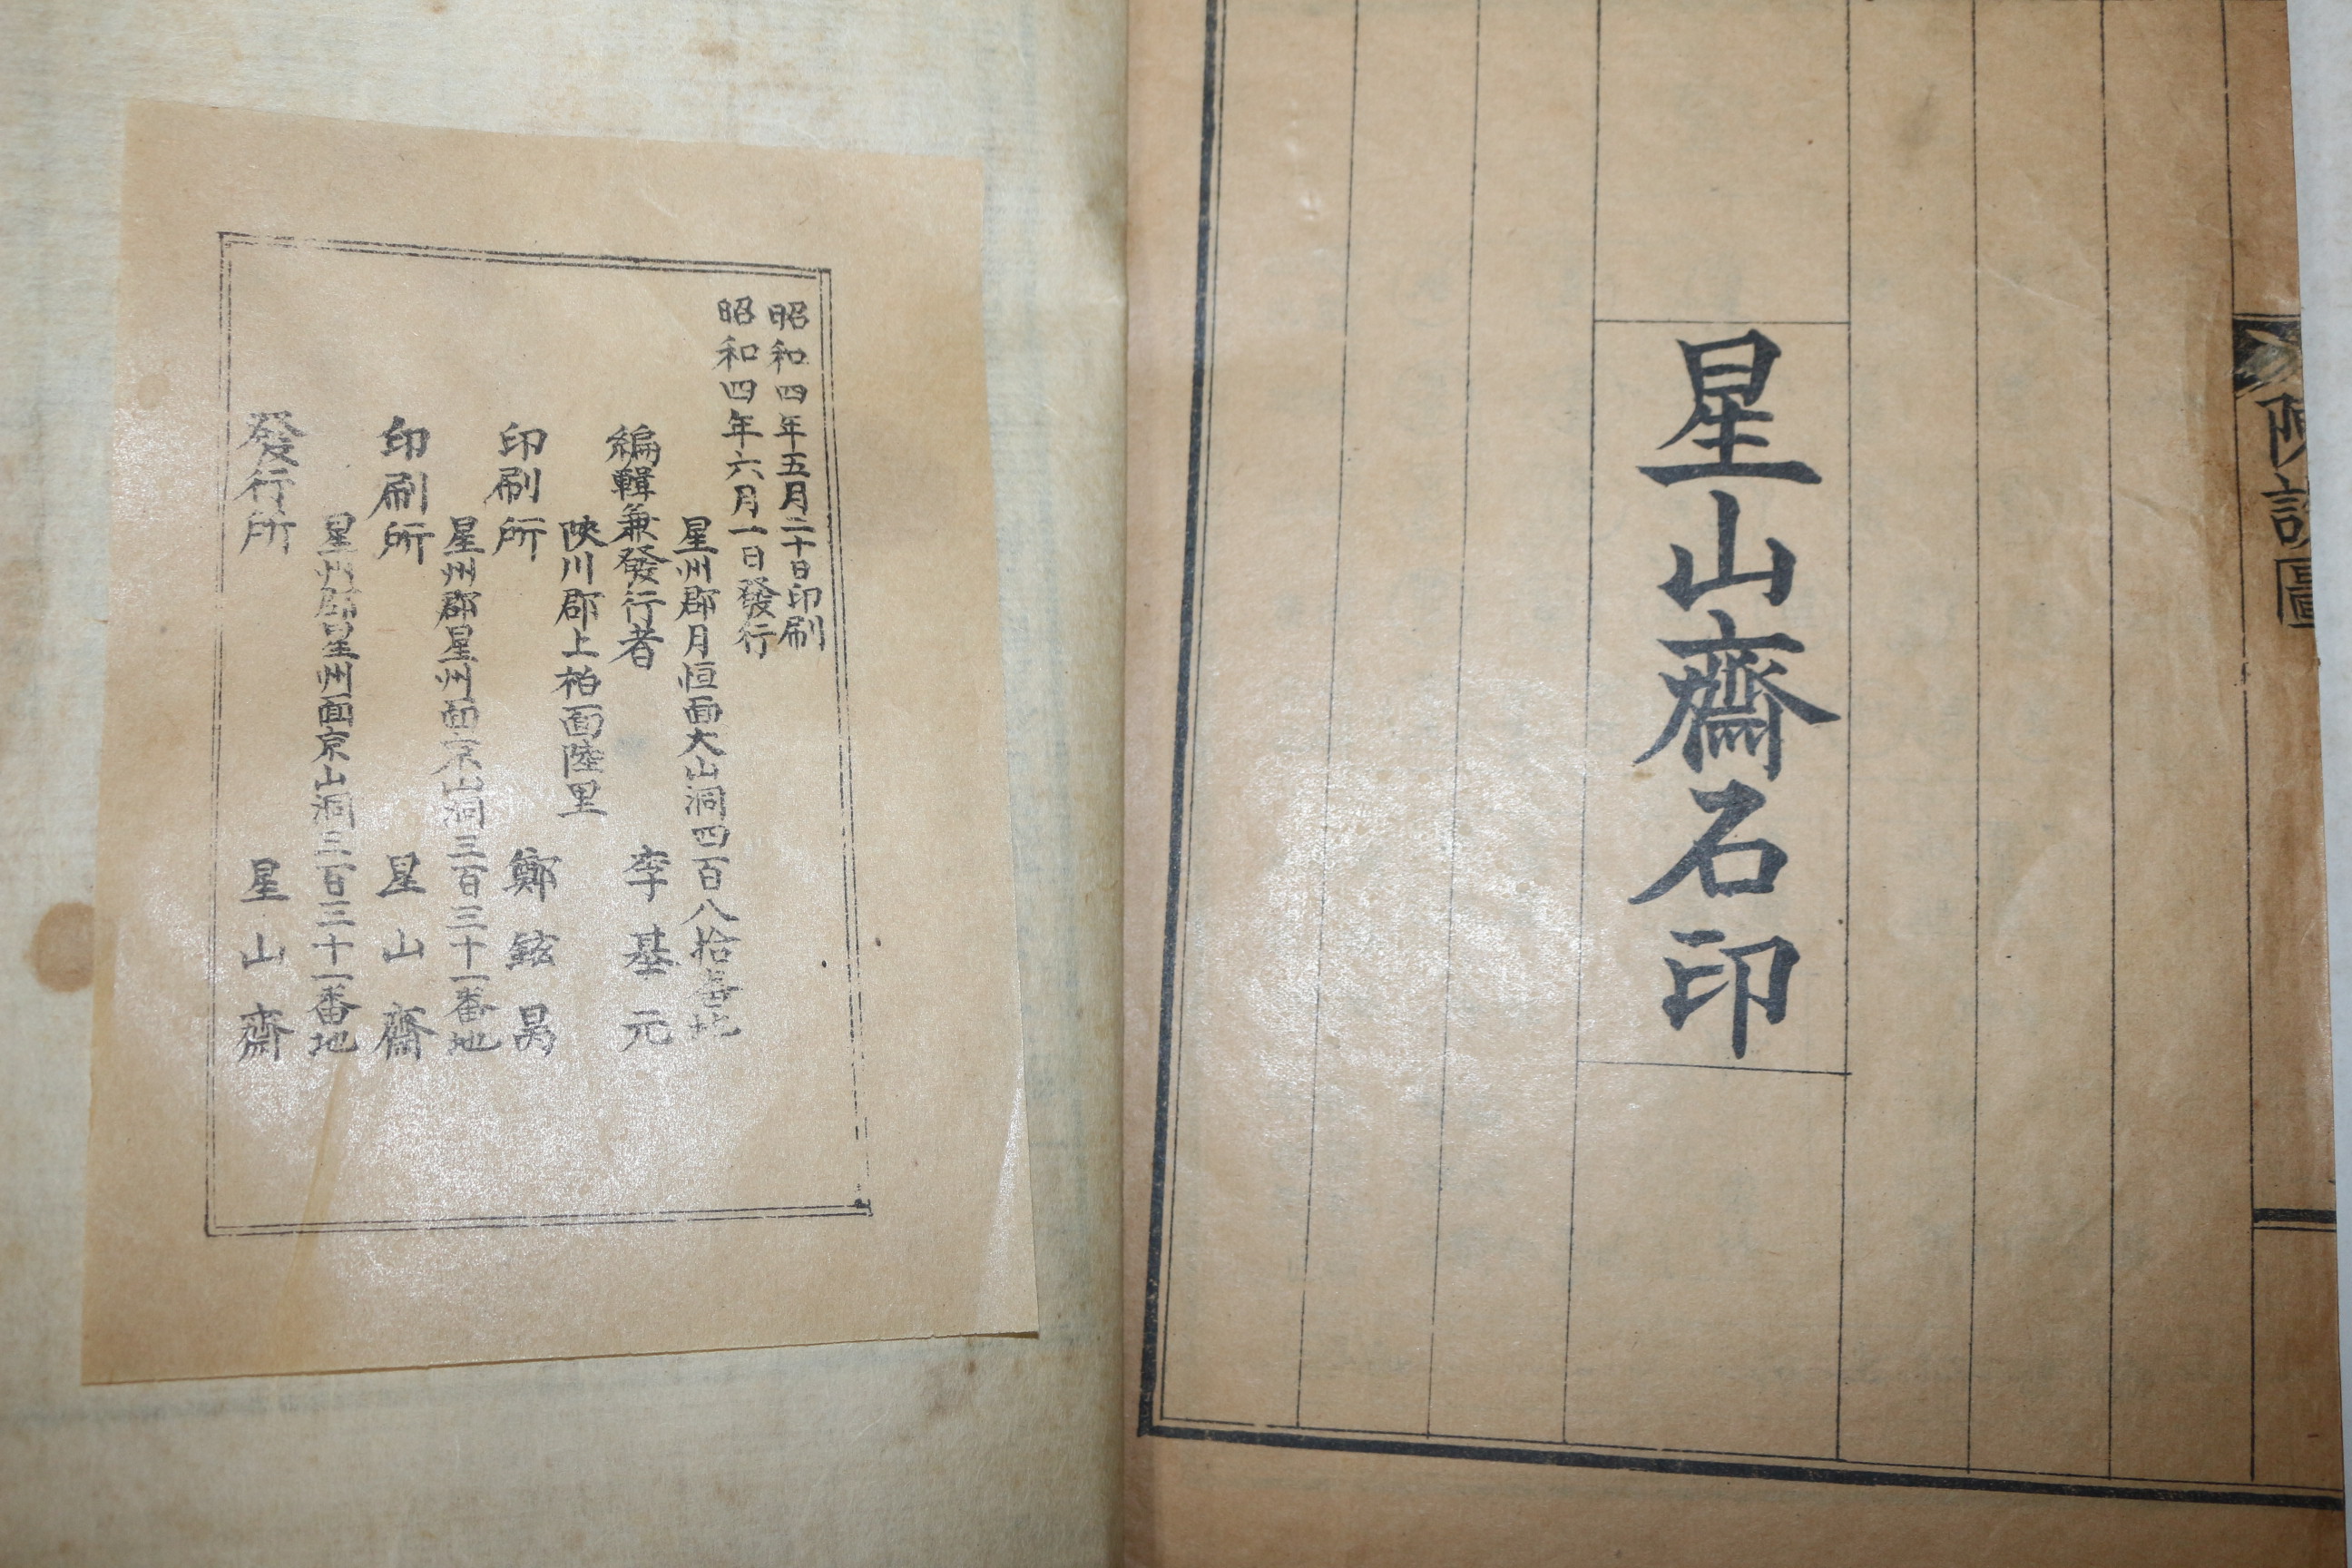 陳設圖
星山齋石印
昭和四年五月二十日印刷
昭和四年六月一日發行
星州郡月恒面大山洞四百八拾番地
編輯兼發行者 李基元
陜川郡上柏面陸里
印刷所 鄭鉉
星州郡星州面京山洞三百三十一番地
印刷所 星山齋
星州郡星州面京山洞三百三十一番地
發行所 星山齋